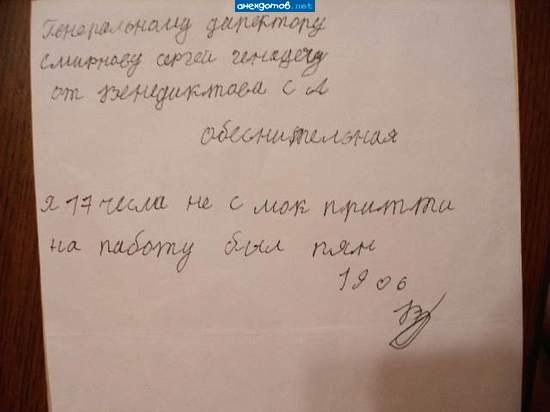 анекдотов.net
Генеральному директору
смирнову сергей генадечу
от Венедиктова с А
обеснительная
я 17 числа не с мок притти
на работу был пян
19 06